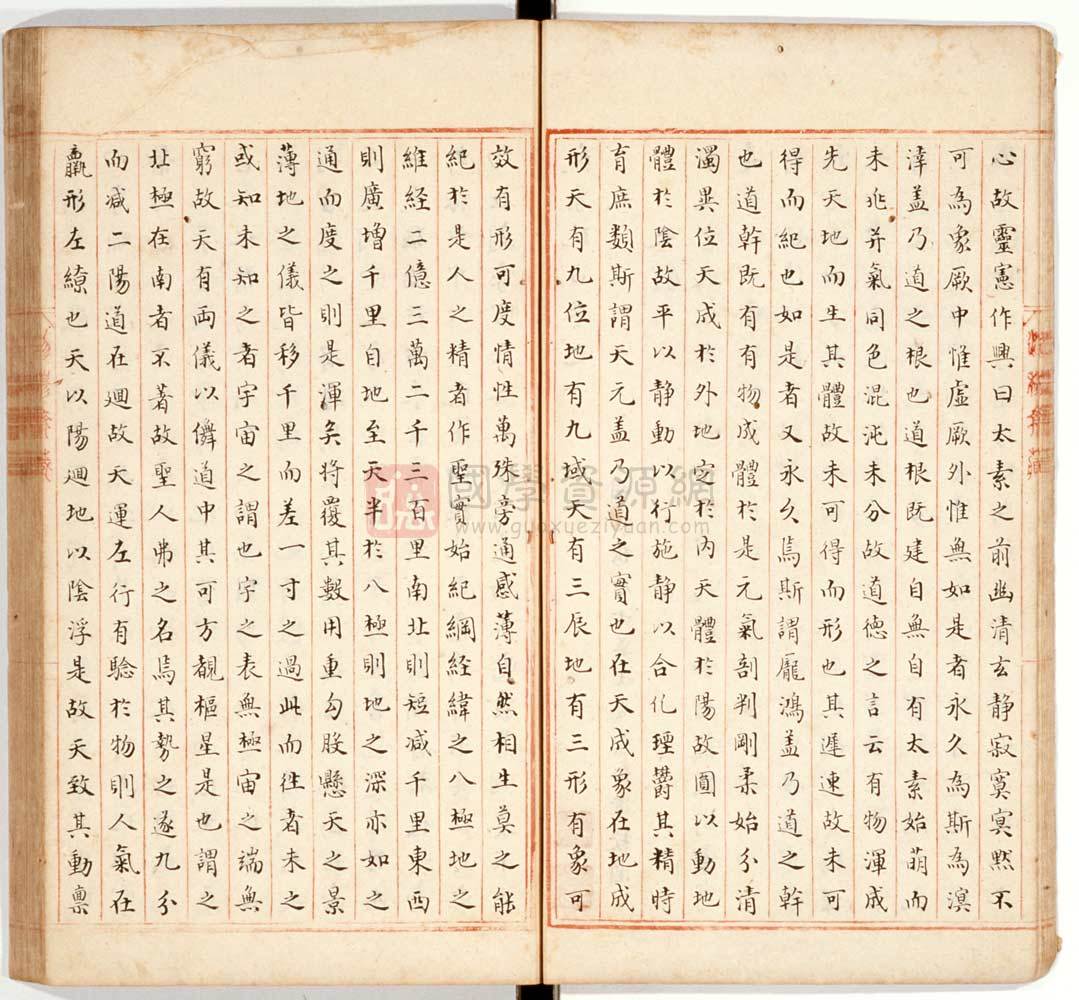 心故靈憲作興曰太素之前幽清玄静寂寞冥黙不
可為象厥中惟虛厥外惟無如是者永久為斯為溟
涬盖乃道之根也道根既建自無自有太素始萌而
未兆并氣同色混沌未分故道德之言云有物渾成
先天地而生其體故未可得而形也其遲速故未可
得而紀也如是者又永久焉斯謂龐鴻盖乃道之幹
也道幹既有有物成體於是元氣剖判剛柔始分清
濁異位天成於外地定於内天體於陽故圓以動地
體於陰故平以静動以行施静以合化堙欝其精時
育庶類斯謂天元盖乃道之實也在天成象在地成
形天有九位地有九域天有三辰地有三形有象可
效有形可度情性萬殊旁通感薄自然相生莫之能
紀於是人之精者作聖實始紀綱經緯之八極地之
維経二億三萬二千三百里南北則短减千里東西
則廣增千里自地至天半於八極則地之深亦如之
通而度之則是渾矣将覆其數用重勾股懸天之景
薄地之儀皆移千里而差一寸之過此而徃者未之
或知未知之者宇宙之謂也宇之表無極宙之端無
窮故天有両儀以儛道中其可方覩樞星是也謂之
北極在南者不著故聖人弗之名焉其勢之遂九分
而减二陽道在廻故天運左行有驗於物則人氣在
羸形左繚也天以陽廻地以陰浮是故天致其動禀
國學資源網
www.guoxueziyuan.com